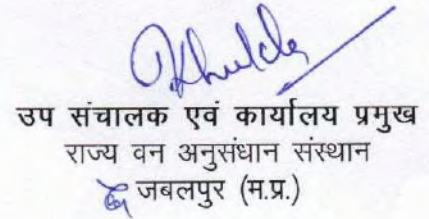 उप संचालक एवं कार्यालय प्रमुख
राज्य वन अनुसंधान संस्थान
जबलपुर (म.प्र.)